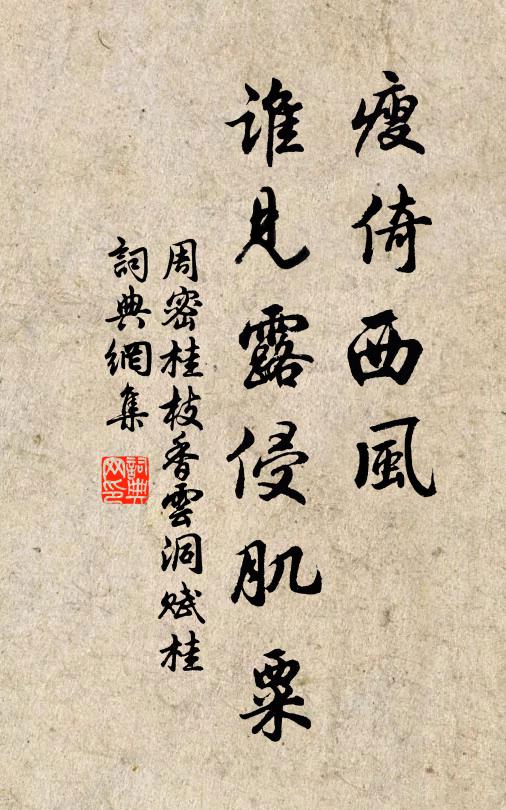 瘦倚西風
誰見露侵肌粟
周密桂枝香雲洞賦桂
詞典網集
詞典網印